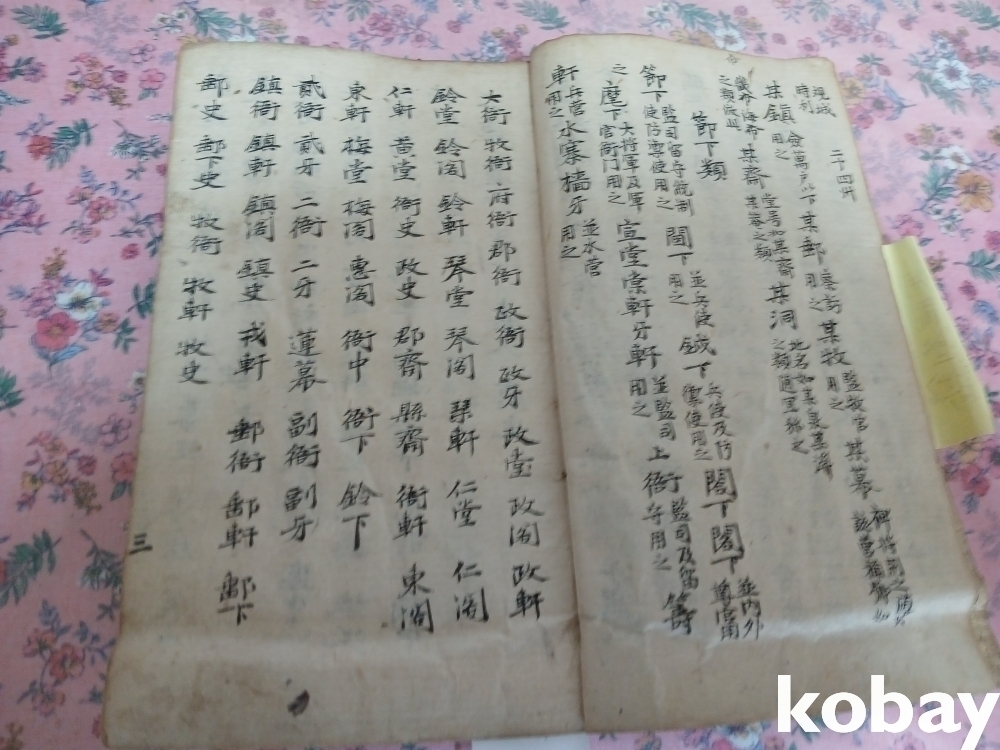 二十四卅
某鎭 用之 僉萬戶 某郵 用之 某牧 用之 監牧官 某幕
某齋 堂号如某齋某菴之類 某洞 地名如某泉某澤之類通里稱之
節下類
節下 監司留守統制使防禦使用之 閤下 並兵使用之 鉞下 兵使及防禦使用之 閤下 閣下 並內外
之 麾下 大將軍及軍官衙門用之 宣堂 棠軒 牙軒 並監司用之 上衙 監司及留守用之 籌
軒 兵營用之 水寨 檣牙 並水營用之
大衙 牧衙 府衙 郡衙 政衙 政牙 政堂 政閣 政軒
鈴堂 鈴閣 鈴軒 琴堂 琴閣 琴軒 仁堂 仁閣
仁軒 黃堂 衙史 政史 郡齋 縣齋 衙軒 東閣
東軒 梅堂 梅閣 惠閣 衙中 衙下 鈴下
貳衙 貳牙 二衙 二牙 蓮幕 副衙 副牙
鎭衙 鎭軒 鎭閣 鎭史 戎軒 郵衙 郵軒 郵下
郵史 郵下史 牧衙 牧軒 牧史
三
kobay